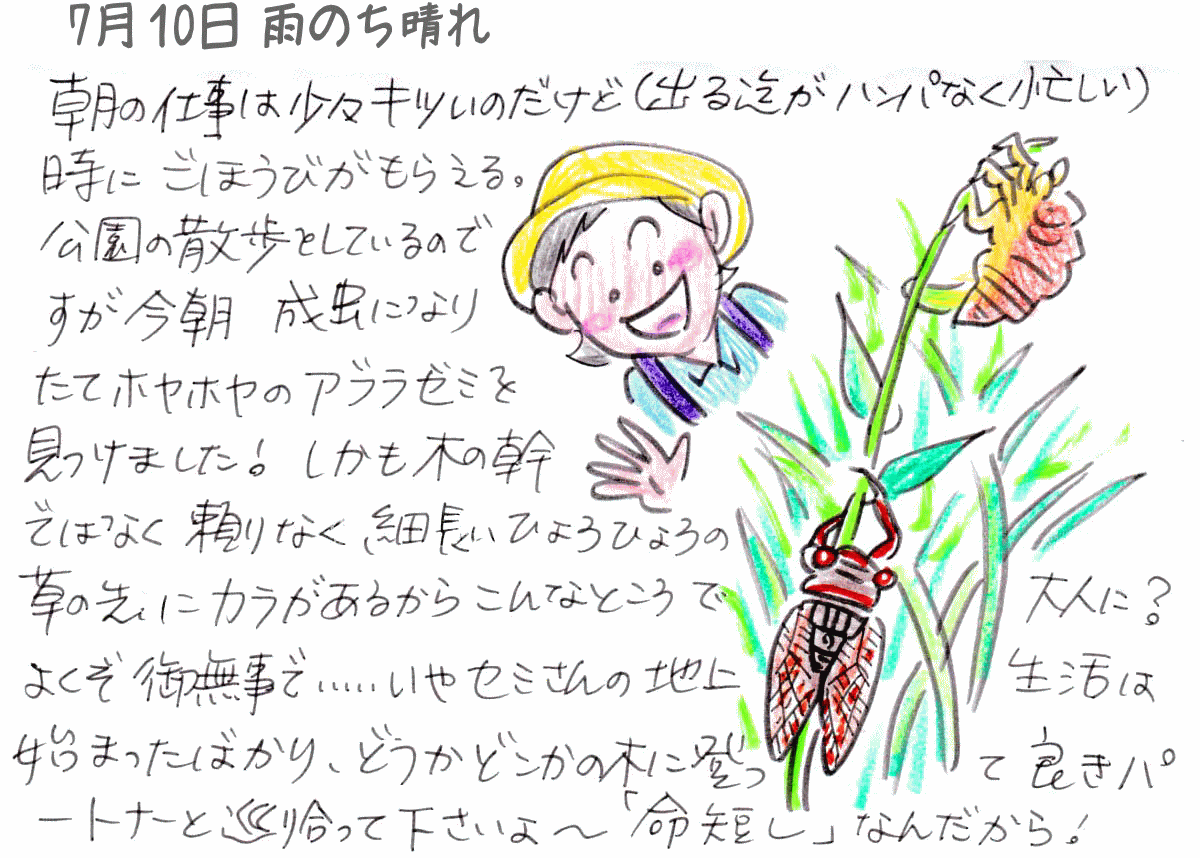 7月10日 雨のち晴れ
朝の仕事は少々キツいのだけど(出る迄がハンパなく忙しい)
時にごほうびがもらえる。
公園の散歩をしているので
すが今朝 成虫になり
たてホヤホヤのアブラゼミを
見つけました! しかも木の幹
ではなく 頼りなく 細長いひょろひょろの
草の先にカラがあるからこんなところで 大人に?
よくぞ御無事で.....いやセミさんの地上 生活は
始まったばかり、どうかどこかの木に登っ て良きパ
ートナーと巡り合って下さいよ〜「命短し」なんだから!